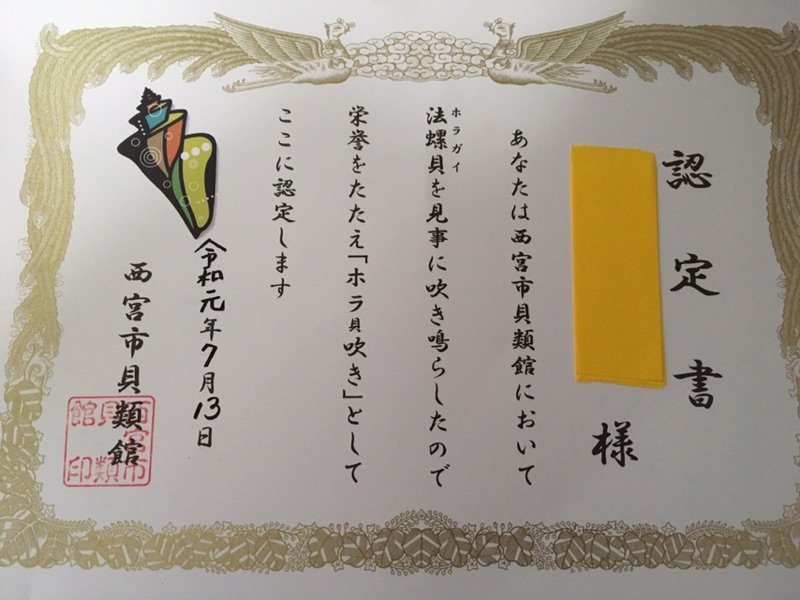 認定書
様
あなたは西宮市貝類館において
ホラガイ
法螺貝を見事に吹き鳴らしたので
栄誉をたたえ「ホラ貝吹き」として
ここに認定します
令和元年7月13日
西宮市貝類館
西宮市貝類館印